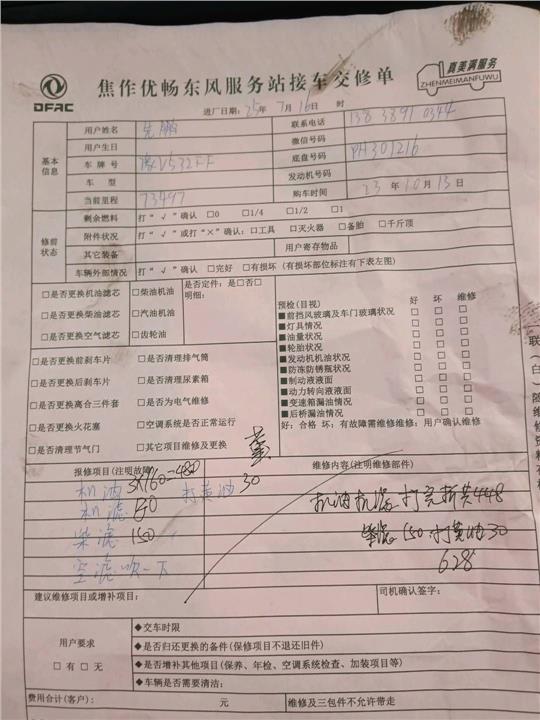 DFAC
焦作优畅东风服务站接车交修单
真美满服务
ZHENMEIMANFUWU
进厂日期：25年7月16日 时
基本信息
用户姓名 先鹏 联系电话 138 3891 0344
用户生日 微信号码
车牌号 豫V532FF 底盘号码 PH301216
车型 发动机号码
当前里程 73497 购车时间 23年10月13日
修前状态
剩余燃料 打“√”确认 □0 □1/4 □1/2 □1
附件状况 打“√”或打“×”确认：□工具 □灭火器 □备胎 □千斤顶
其它装备 用户寄存物品
车辆外部情况 打“√”确认 □完好 □有损坏（有损坏部位标注有下表左图）
□是否更换机油滤芯 □柴油机油 是否定件：是□否□
□是否更换柴油滤芯 □汽油机油 明细：
□是否更换空气滤芯 □齿轮油
□是否更换前刹车片 □是否清理排气筒
□是否更换后刹车片 □是否清理尿素箱
□是否更换离合三件套 □是否为电气维修
□是否更换火花塞 □空调系统是否正常运行
□是否清理节气门 □其它项目维修及更换
预检（目视） 好 坏 维修
■前挡风玻璃及车门玻璃状况 □ □ □
■灯具情况 □ □ □
■油量状况 □ □ □
■轮胎状况 □ □ □
■发动机机油状况 □ □ □
■防冻防锈瓶状况 □ □ □
■制动液液面 □ □ □
■动力转向液液面 □ □ □
■变速箱漏油情况 □ □ □
■后桥漏油情况 □ □ □
好：合格 坏：有故障需维修维修：用户确认维修
报修项目（注明故障） 维修内容（注明维修部件）
机油 3X160=480 打黄油 30
机滤 80
柴滤 150
空滤吹一下
机油机滤打完折共448
柴滤150 打黄油30
628
建议维修项目或增补项目： 司机确认签字：
用户要求
□有 □无
◆交车时限
◆是否归还更换的备件（保修项目不退还旧件）
◆是否增补其他项目（保养、年检、空调系统检查、加装项目等）
◆车辆是否需要清洁：
费用合计（客户）： 元 维修及三包件不允许带走
联
（白）